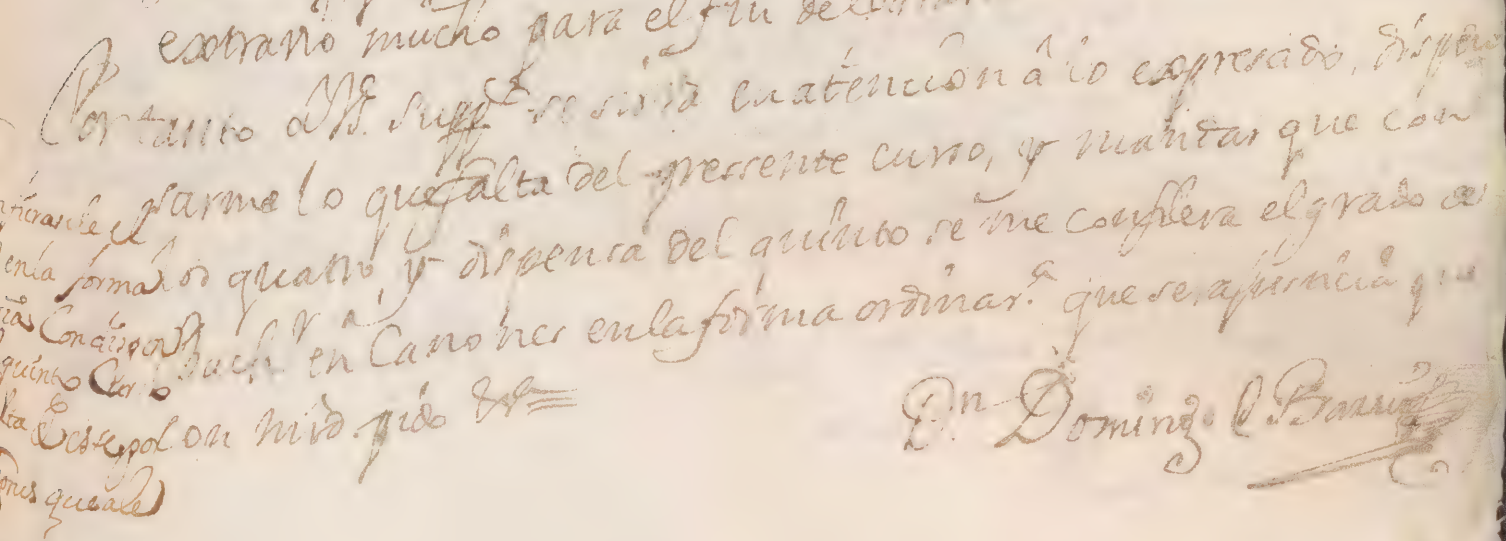 extraño mucho para el fin del
Portanto aVS. supp.ca se sirva en atencion â lo expresado, dispen
sarme lo que falta del pressente curso, y mandar que con
los quatro, y dispensa del quinto se me confiera el grado de
Bach.r en Canones en la forma ordinar.a que sera justicia que
on mrd. pido &.a
D.n Domingo Barrios
forma
Con dispon
quinto Curso
lta
ones que ale